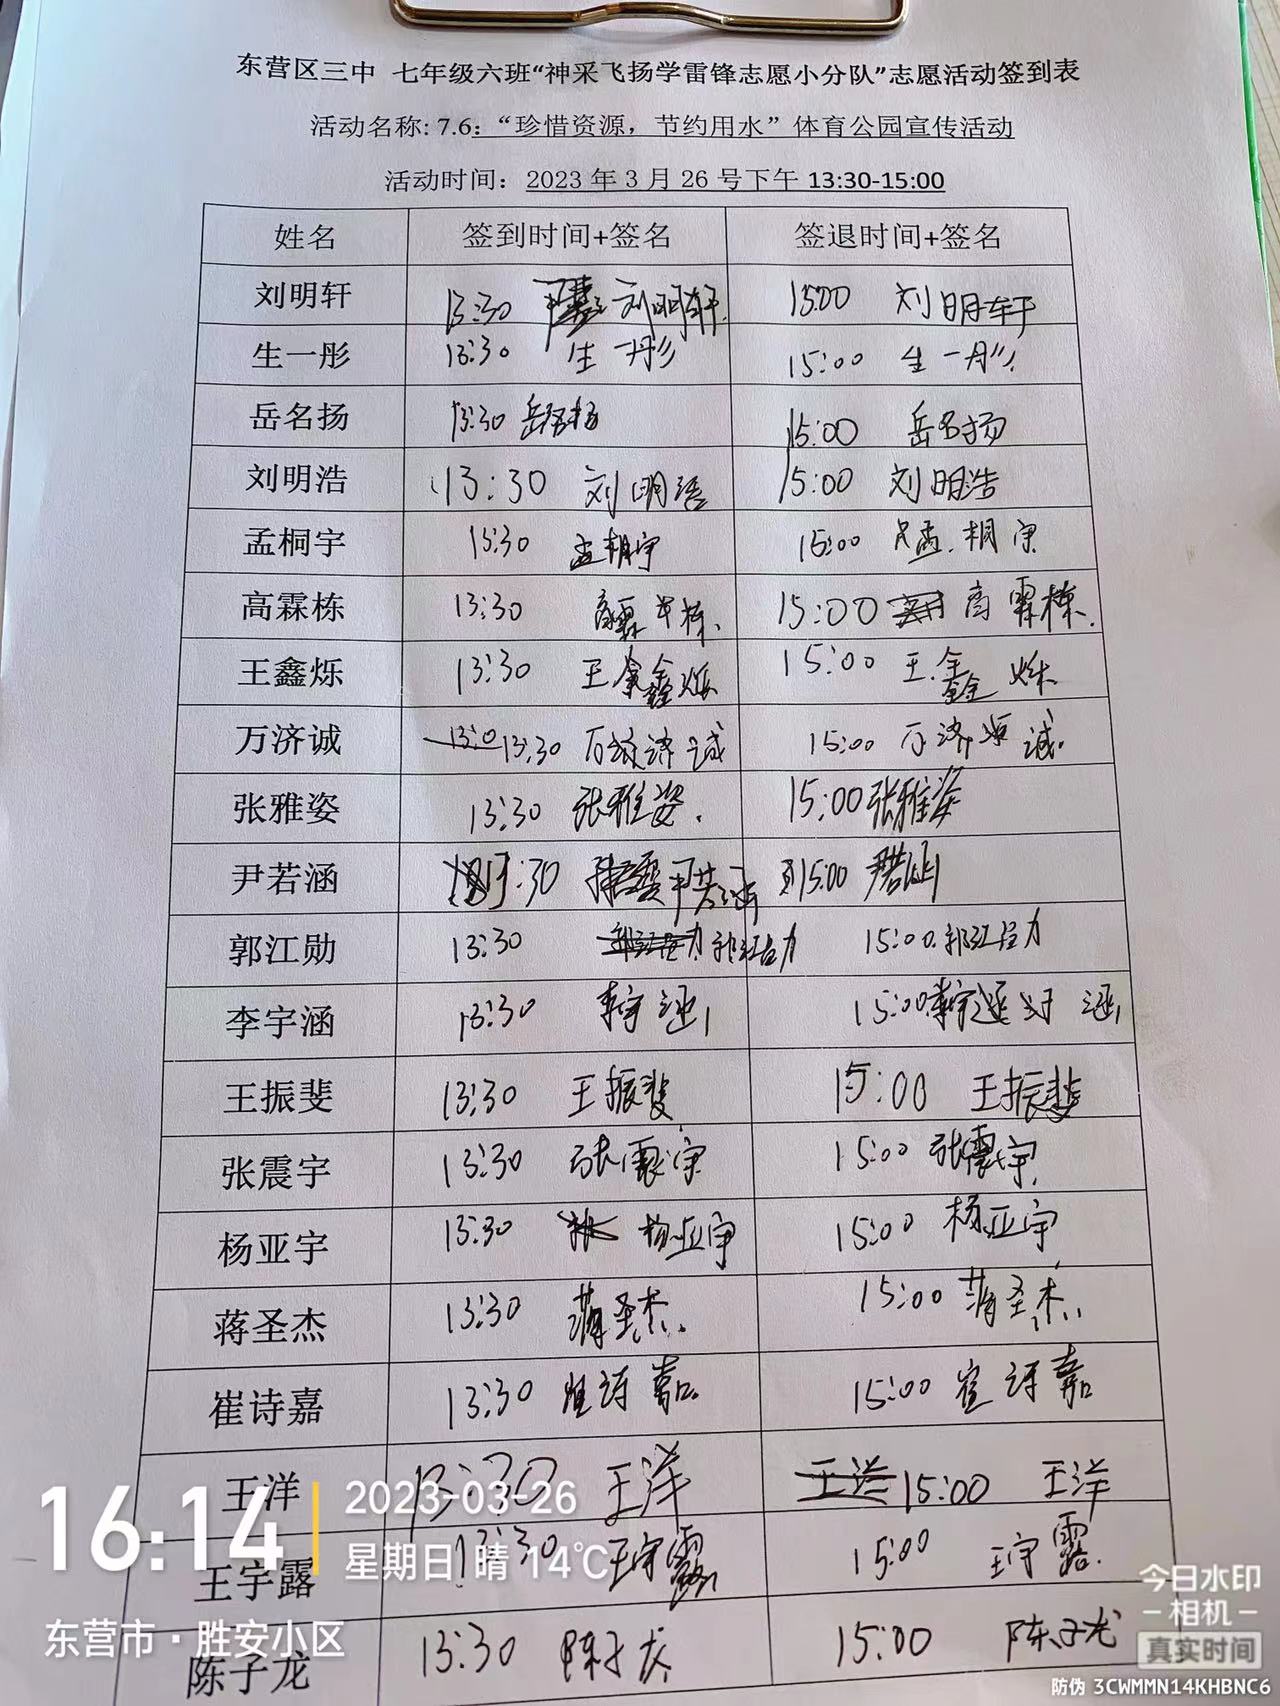 东营区三中 七年级六班“神采飞扬学雷锋志愿小分队”志愿活动签到表
活动名称: 7.6：“珍惜资源，节约用水”体育公园宣传活动
活动时间：2023 年 3 月 26 号下午 13:30-15:00
姓名 签到时间+签名 签退时间+签名
刘明轩 13:30 刘明轩 15:00 刘明轩
生一彤 13:30 生一彤 15:00 生一彤
岳名扬 13:30 岳名扬 15:00 岳名扬
刘明浩 13:30 刘明浩 15:00 刘明浩
孟桐宇 13:30 孟桐宇 15:00 孟桐宇
高霖栋 13:30 高霖栋 15:00 高霖栋
王鑫烁 13:30 王鑫烁 15:00 王鑫烁
万济诚 13:30 万济诚 15:00 万济诚
张雅姿 13:30 张雅姿 15:00 张雅姿
尹若涵 13:30 尹若涵 15:00 尹若涵
郭江勋 13:30 郭江勋 15:00 郭江勋
李宇涵 13:30 李宇涵 15:00 李宇涵
王振斐 13:30 王振斐 15:00 王振斐
张震宇 13:30 张震宇 15:00 张震宇
杨亚宇 13:30 杨亚宇 15:00 杨亚宇
蒋圣杰 13:30 蒋圣杰 15:00 蒋圣杰
崔诗嘉 13:30 崔诗嘉 15:00 崔诗嘉
王洋 13:30 王洋 王洋 15:00 王洋
王宇露 13:30 王宇露 15:00 王宇露
陈子龙 13:30 陈子龙 15:00 陈子龙
16:14
2023-03-26
星期日 晴 14℃
东营市·胜安小区
今日水印
相机
真实时间
防伪 3CWMMN14KHBNC6